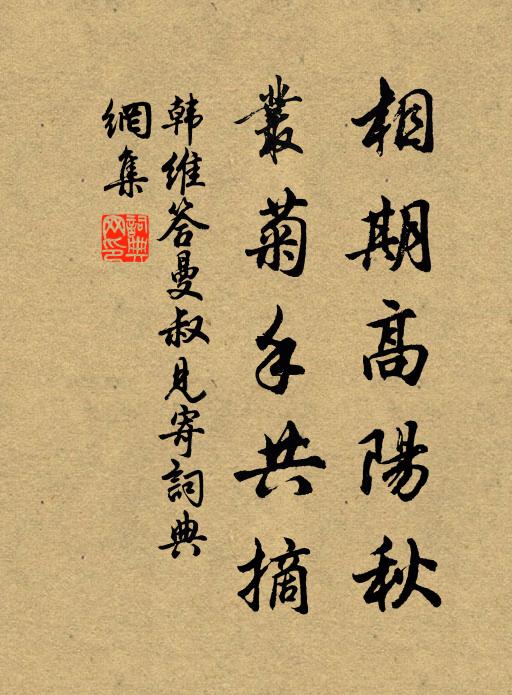 相期高陽秋
叢菊手共摘
韩維答曼叔見寄詞典
網集
詞典网印